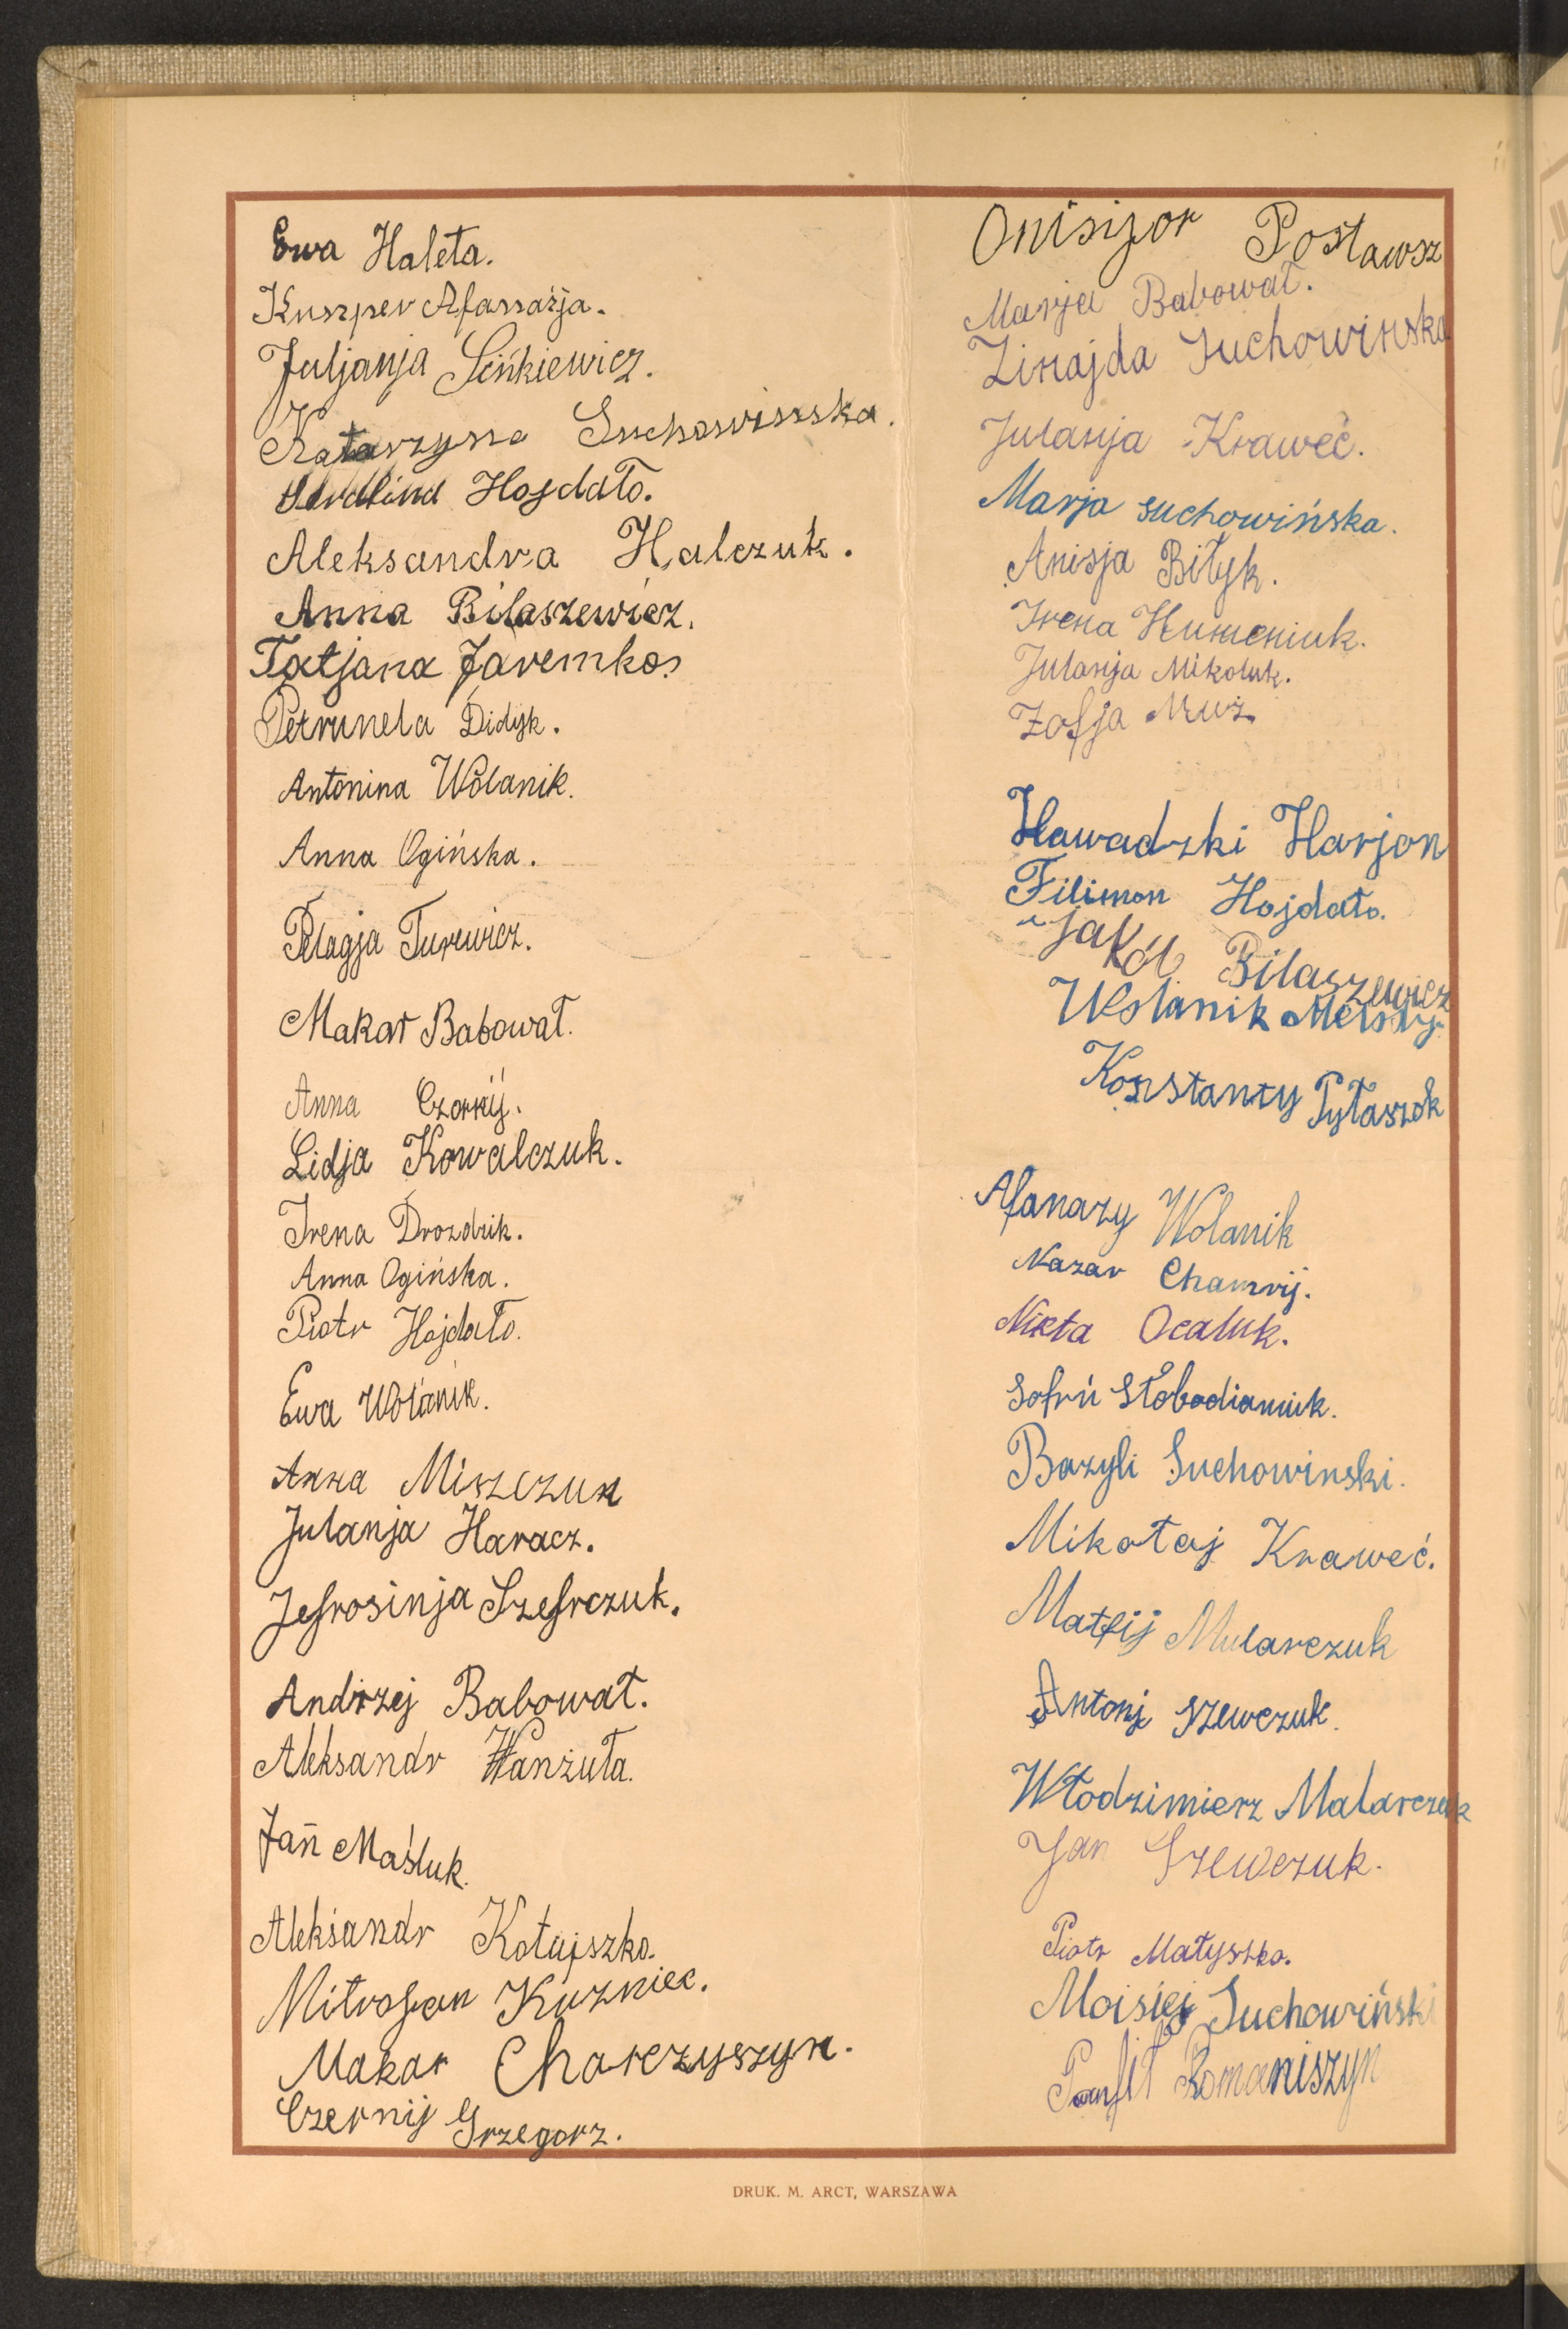 Ewa Haleta.
Kuszper Afanazja.
Juljanja Sińkiewicz.
Katarzyna Suchowinska.
Hojdało.
Aleksandra Halczuk.
Anna Bilaszewicz.
Tatjana Jaremko.
Petrunela Didyk.
Antonina Wolanik.
Anna Ogińska.
Pelagja Turewicz.
Makar Babował.
Anna Czornij.
Lidja Kowalczuk.
Irena Drozdzik.
Anna Ogińska.
Piotr Hojdało.
Ewa Wolanik.
Anna Miszczuk
Julanja Haracz.
Jefrosinja Szefrczuk.
Andrzej Babował.
Aleksandr Wanżuła.
Jan Maśluk.
Aleksandr Kotujszko.
Mitrofan Kuzniec.
Makar Charczyszyn.
Czernij Grzegorz.
Onisijor Postawsz
Marja Babował.
Zinajda Suchowinska
Julanja Kraweć.
Marja suchowińska.
Anisja Biłyk.
Irena Humeniuk.
Julanja Mikoluk.
Zofja Muż.
Hawadzki Harjon
Filimon Hojdało.
Jakób Bilaszewicz
Wolanik
Konstanty Pytaszok
Afanazy Wolanik
Nazar Chamrij.
Nikta Ocaluk.
Sofrń Słobodianiuk.
Bazyli Suchowinski.
Mikołaj Kraweć.
Matfij Mularczuk
Antonj Szewczuk.
Włodzimierz Malarczuk
Jan Szewczuk.
Piotr Matyszko.
Moisiej Suchowiński
Panfił Romaniszyn
DRUK. M. ARCT, WARSZAWA